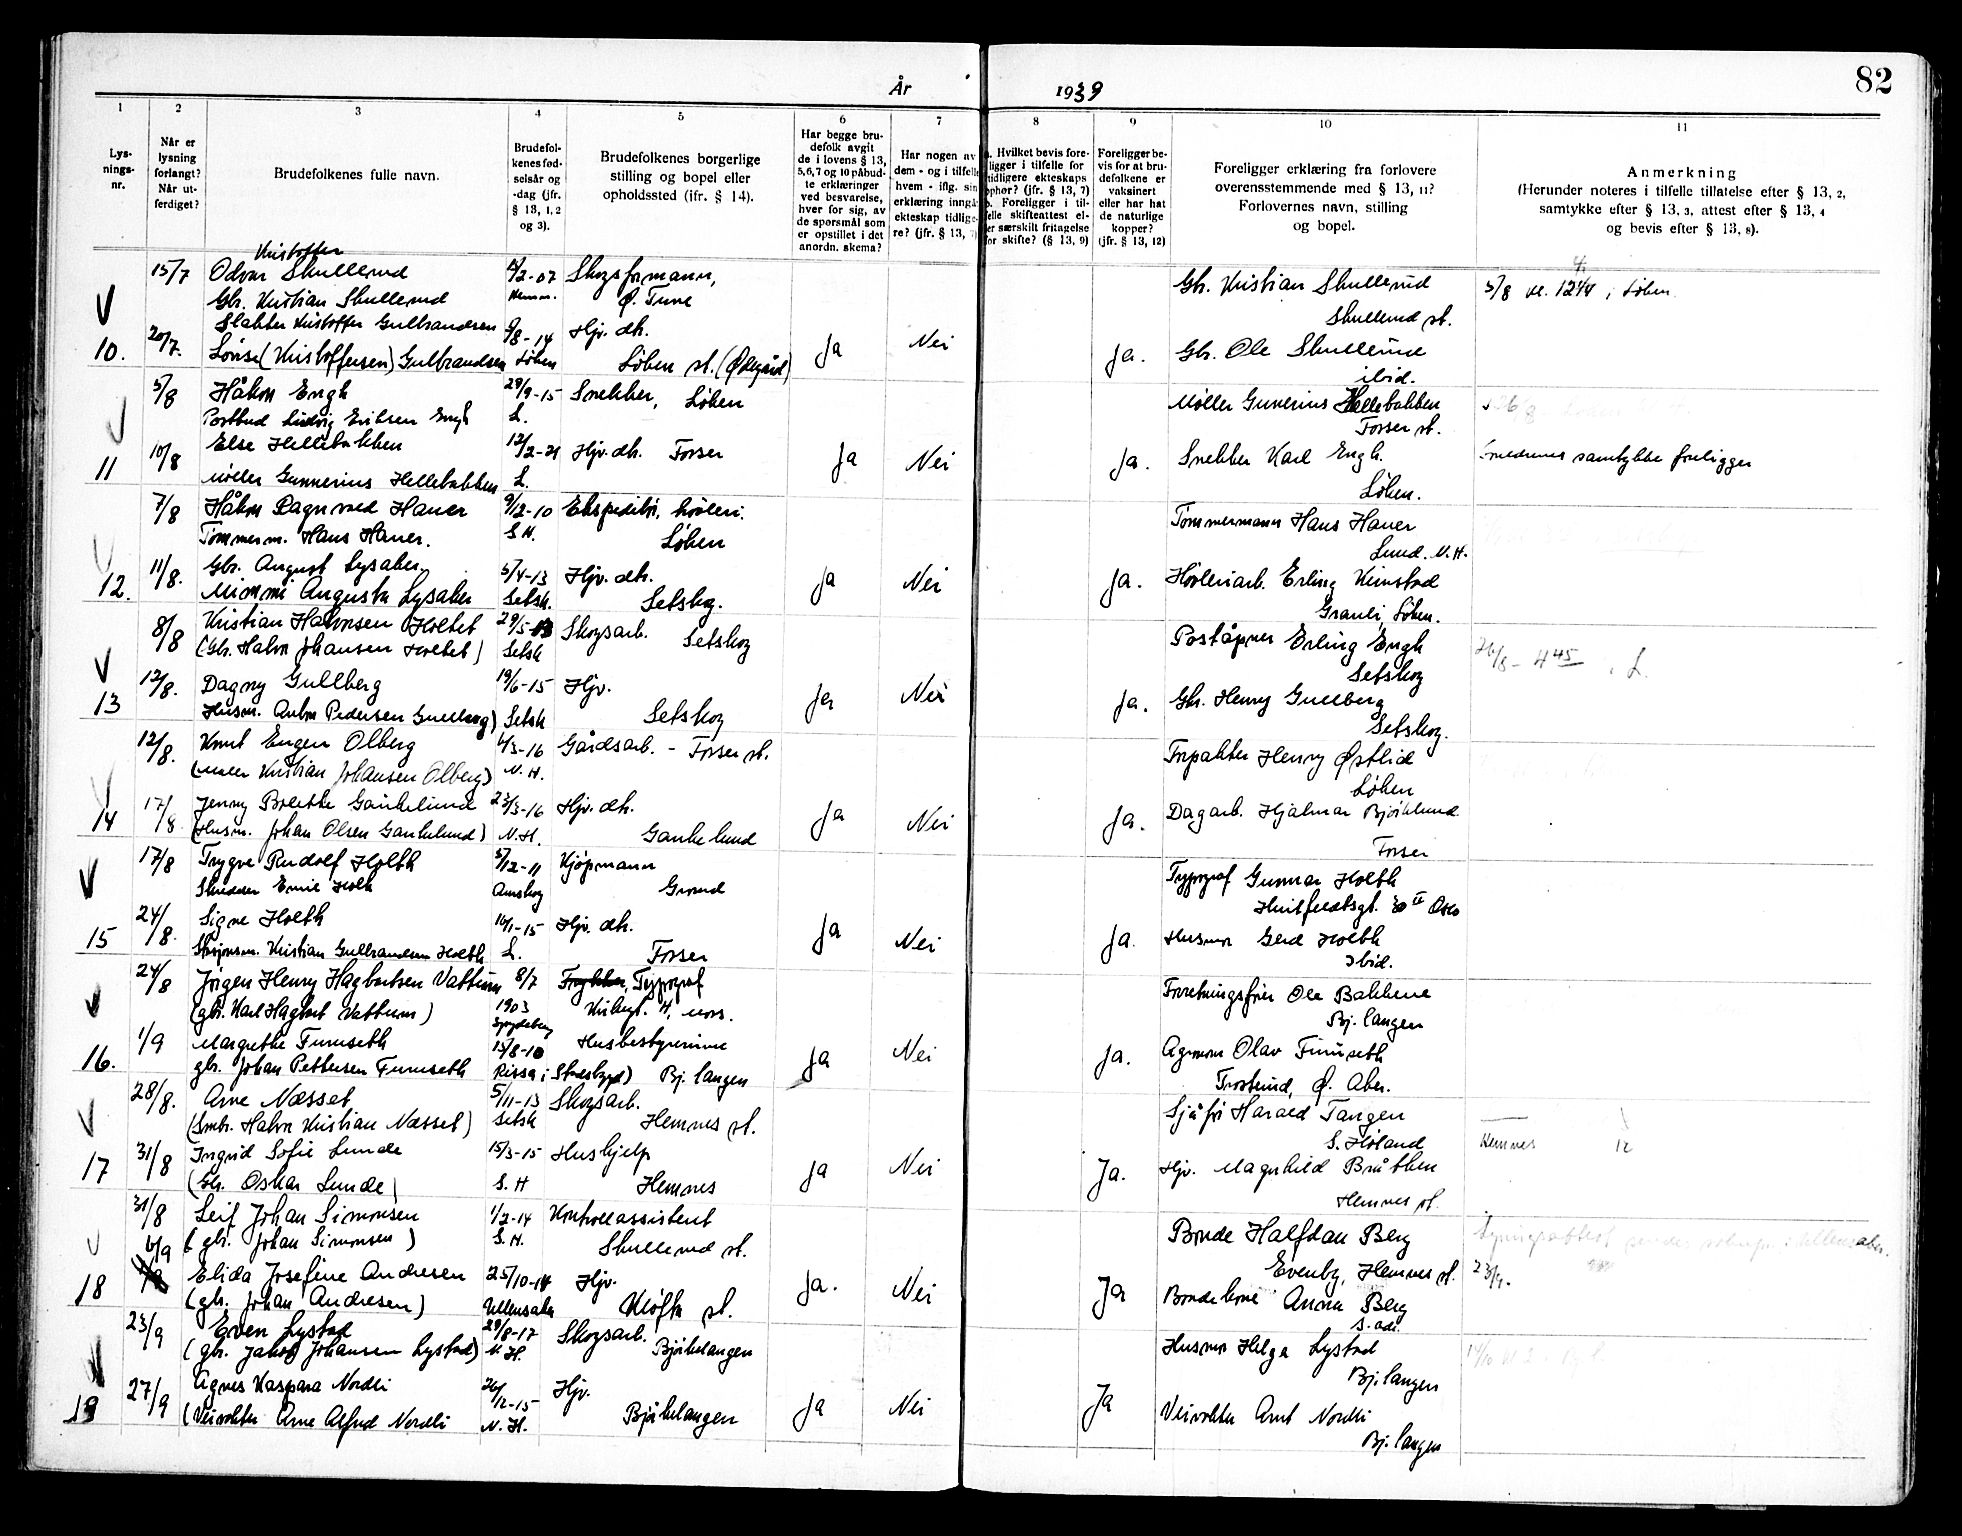 82
År 1939
1 2 3 4 5 6 7 8 9 10 11
Lysningsnr.
Når er lysning forlangt? Når utferdiget?
Brudefolkenes fulle navn.
Brudefolkenes fødselsår og -dag (jfr. § 13, 1, 2 og 3).
Brudefolkenes borgerlige stilling og bopel eller opholdssted (ifr. § 14).
Har begge brudefolk avgit de i lovens § 13, 5, 6, 7 og 10 påbudte erklæringer ved besvarelse, hver for sig, av de spørsmål som er opstillet i det anordn. skema?
Har nogen av dem - og i tilfelle hvem - iflg. sin erklæring inngå ekteskap tidligere? (jfr. § 13, 7)
a. Hvilket bevis foreligger i tilfelle for tidligere ekteskaps ophør? (jfr. § 13, 7) b. Foreligger i tilfelle skifteattest eller særskilt fritagelse for skifte? (§ 13, 9)
Foreligger bevis for at brudefolkene er vaksinert eller har hat de naturlige kopper? (jfr. § 13, 12)
Foreligger erklæring fra forlovere overensstemmende med § 13, 11? Forlovernes navn, stilling og bopel.
Anmerkning
(Herunder noteres i tilfelle tillatelse efter § 13, 2, samtykke efter § 13, 3, attest efter § 13, 4 og bevis efter § 13, 8).
Kristoffer
15/7 Odvar Skullerud 2-07 Skogsformann, Gbr. Kristian Skullerud 5/8 kl. 12 i Løken
Gbr. Kristian Skullerud Hemn. Ø. Tune Skullerud st.
Slakter Kristoffer Gulbrandsen 8-14 Hjv. dtr.
10. 20/7. Lovise (Kristoffersen) Gulbrandsen Løken Løken st. (Ødegård) Ja Nei Ja. Gbr. Ole Skullerud
ibid.
5/8 Håkon Engh 29/9-15 Snekker, Løken Møller Gunerius Hellebakken
Postbud Ludvig Eriksen Engh L. Forser st.
11 10/8 Else Hellebakken 12/2-21 Hjv. dtr. Forser Ja Nei Ja. Snekker Karl Engh. samtykke foreligger
Møller Gunnerius Hellebakken L. Løken.
7/8 Håkon Ragnvald Haner 9/12-10 Ekspeditør, høvleri. Tømmermann Hans Haner
Tømmerm. Hans Haner. S.H. Løken Lund. N.H.
11/8. Gbr. August Lysaker 5/4-13 Hjv. dtr.
12. Mimmi Augusta Lysaker Setsk. Setskog. Ja Nei Ja. Høvleriarb. Erling Kinstad
Granli, Løken.
8/8 Kristian Halvorsen Holtet 29/5-13 Skogsarb. Setskog Poståpner Erling Engh 26/8 - 4 45 i L.
(Gbr. Halvor Johansen Holtet) Setsk Setskog
13 12/8. Dagny Gullberg 19/6-15 Hjv. Ja Nei Ja. Gbr. Henry Gullberg
Husm. Anton Pedersen Gullberg) Setsk Setskog Setskog.
12/8. Knut Eugen Olberg 3-16 Gårdsarb. - Forser st. Forpakter Henry Østlid
(Møller Kristian Johansen Olberg) N.H. Løken
14 17/8 Jenny Bolette Gankelund 23/3-16 Hjv. dtr. Ja Nei Ja. Dagarb. Hjalmar Bjørklund
(Husm. Johan Olsen Gankelund) N.H. Gankelund Forser
17/8 Trygve Rudolf Holth 5/12-11 Kjøpmann Typograf Gunnar Holth
Skredder Emil Holth Aurskog Grond Huitfeldtsgt. II Oslo
15 24/8. Signe Holth 1-15 Hjv. dtr. Ja Nei Ja. Husmor Gerd Holth
Kristian Gulbrandsen Holth L. Forser Ibid.
24/8 Jørgen Henry Hagbartsen Vattum 8/7 Typograf Forretningsfører Ole Bakkene
(gbr. Karl Hagbart Vattum) 1903 Spydeberg Kirkegt. Bj. langen
16. 1/9 Margrethe Furuseth 15/8-10 Husbestyrerinne Ja Nei Ja. Agronom Olav Furuseth
gbr. Johan Pettersen Furuseth Rissa i Bj. langen Trosterud, Ø. Aker.
28/8. Arne Næsset 5/11-13 Skogsarb. Sjåfør Harald Tangen
(Smbr. Halvor Kristian Næsset) Setsk Hemnes st. S. Høland Hemnes 12
17 31/8 Ingrid Sofie Lunde 15/3-15 Hushjelp Ja Nei Ja. Hjv. Magnhild Bråthen
(Gbr. Oskar Lunde) S.H Hemnes Hemnes st.
31/8 Leif Johan Simonsen 1/2-14 Kontrollassistent Bonde Halfdan Berg
(gbr. Johan Simonsen) S.H. Skullerud st. Evenby, Hemnes st. 23/9.
18 6/9 Elida Josefine Andresen 25/10-14 Hjv. Ja. Nei Ja Bondekone Anna Berg
(gbr. Johan Andresen) Ullensaker Kløfta st. s. adr.
23/9 Even Lystad 29/8-17 Skogsarb. Husmor Helga Lystad
(gbr. Jakob Johansen Lystad) N.H. Bjørkelangen Bj. langen
19 27/9 Agnes Kaspara Nordli 26/12-15 Hjv. Ja Nei Ja Veivokter Arnt Nordli
(Veivokter Arne Alfred Nordli N.H. Bjørkelangen Bj. langen